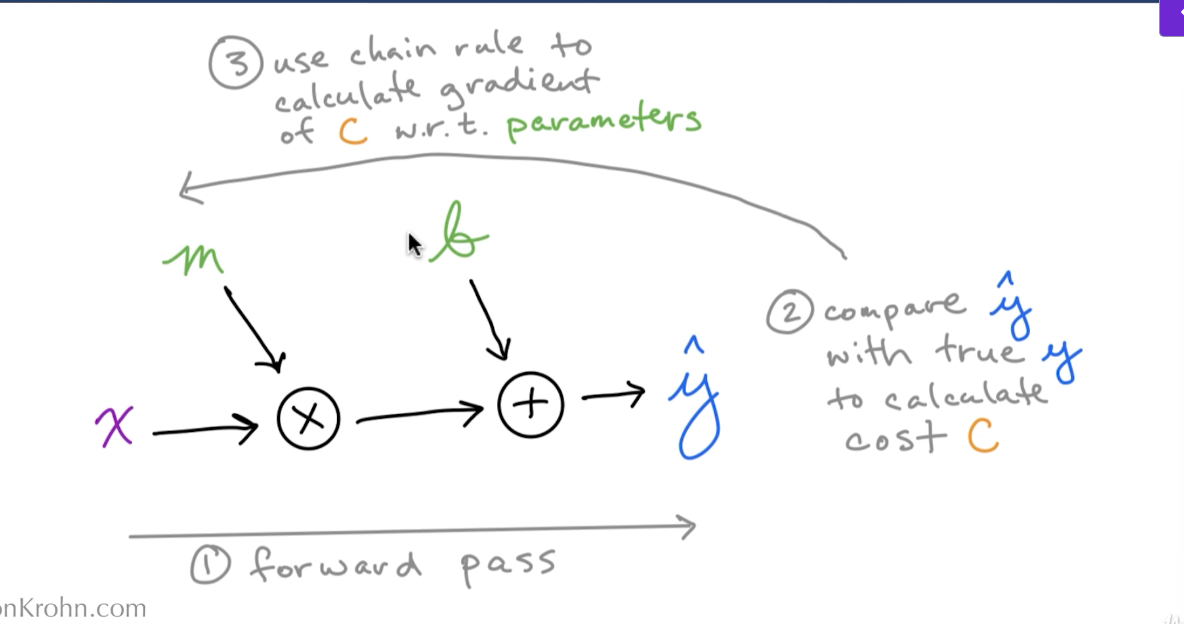 ③ use chain rule to
calculate gradient
of C w.r.t. parameters
m
b
x
×
+
ŷ
② compare ŷ
with true y
to calculate
cost C
① forward pass
onKrohn.com